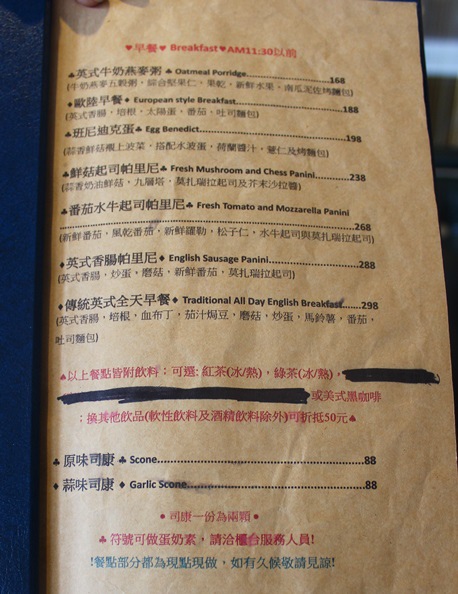 ♥早餐♥ Breakfast♥AM11:30以前
♣英式牛奶燕麥粥 ♣ Oatmeal Porridge......................168
(牛奶燕麥五穀粥，綜合堅果仁，果乾，新鮮水果，南瓜泥佐烤麵包)
♦歐陸早餐♦ European style Breakfast........................188
(英式香腸，培根，太陽蛋，番茄，吐司麵包)
♣班尼迪克蛋♣ Egg Benedict....................................198
(蒜香鮮菇襯上波菜，搭配水波蛋，荷蘭醬汁，薏仁及烤麵包)
♣鮮菇起司帕里尼♣ Fresh Mushroom and Chess Panini.......238
(蒜香奶油鮮菇，九層塔，莫扎瑞拉起司及芥末沙拉醬)
♣番茄水牛起司帕里尼♣ Fresh Tomato and Mozzarella Panini
..............................................................................268
(新鮮番茄，風乾番茄，新鮮羅勒，松子仁，水牛起司與莫扎瑞拉起司)
♦英式香腸帕里尼♦ English Sausage Panini.....................288
(英式香腸，炒蛋，磨菇，新鮮番茄，莫扎瑞拉起司)
♦傳統英式全天早餐♦ Traditional All Day English Breakfast.......298
(英式香腸，培根，血布丁，茄汁焗豆，磨菇，炒蛋，馬鈴薯，番茄，
吐司麵包)
♠以上餐點皆附飲料：可選: 紅茶(冰/熱)，綠茶(冰/熱)，
或美式黑咖啡
；換其他飲品(軟性飲料及酒精飲料除外)可折抵50元♠
♣ 原味司康 ♣ Scone..................................................88
♦ 蒜味司康 ♦ Garlic Scone...........................................88
● 司康一份為兩顆 ●
♣ 符號可做蛋奶素，請洽櫃台服務人員!
!餐點部分都為現點現做，如有久候敬請見諒!